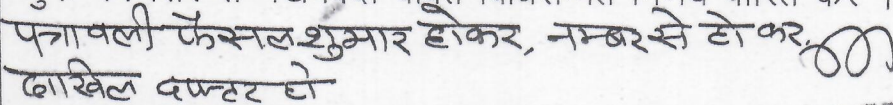 पत्रावली फैसल शुमार होकर, नम्बर से हो कर,
दाखिल दफ्टर हो